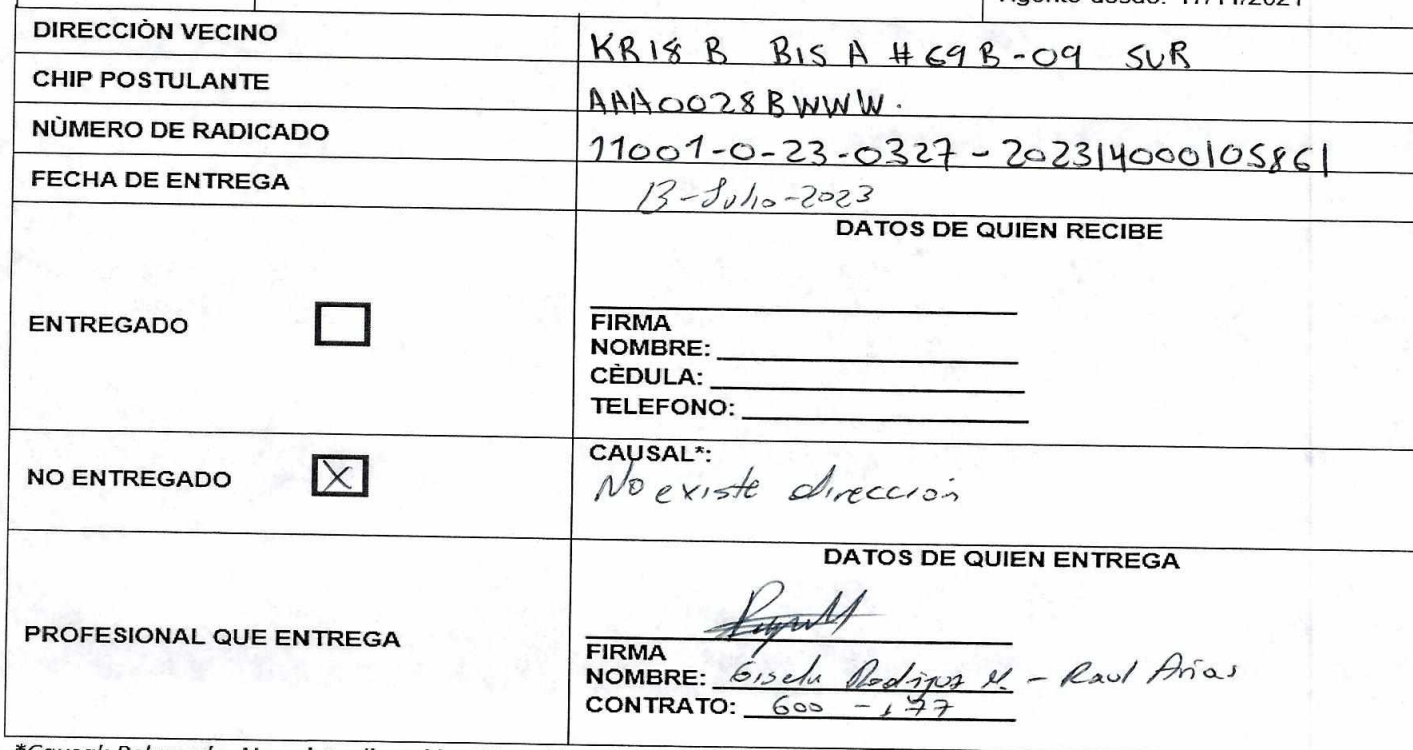 DIRECCIÒN VECINO
KR18 B BIS A # 69B-09 SUR
CHIP POSTULANTE
AAA0028BWWW.
NÙMERO DE RADICADO
11001-0-23-0327-202314000105861
FECHA DE ENTREGA
13-Julio-2023
DATOS DE QUIEN RECIBE
ENTREGADO
FIRMA
NOMBRE:
CÈDULA:
TELEFONO:
NO ENTREGADO X
CAUSAL*:
No existe dirección
DATOS DE QUIEN ENTREGA
PROFESIONAL QUE ENTREGA
FIRMA
NOMBRE: Gisela Rodriguez M. - Raul Arias
CONTRATO: 600 - 177